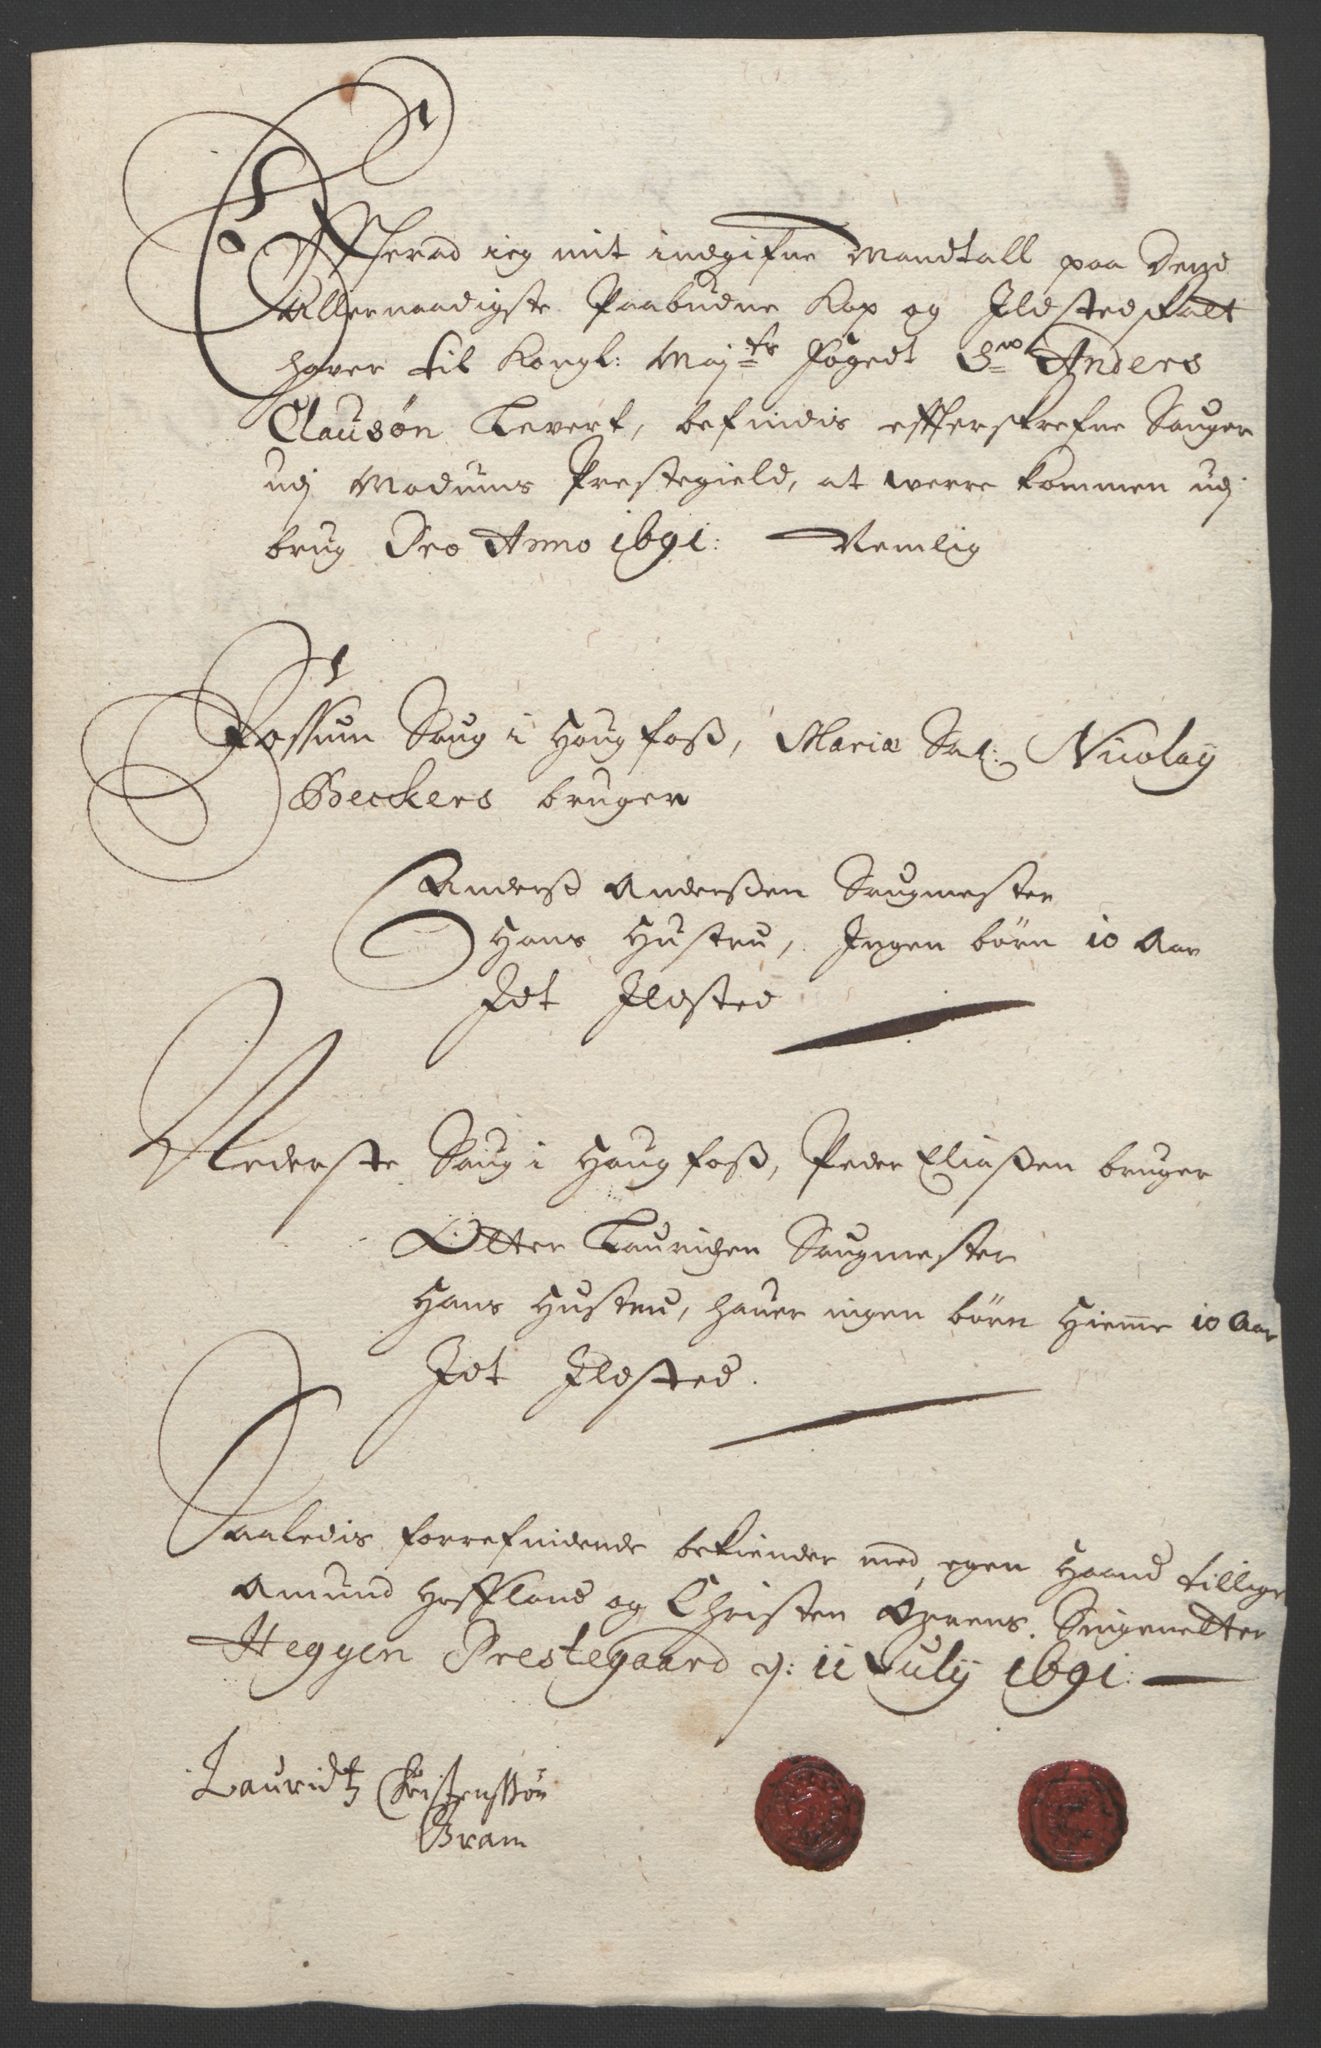 Effterad ieg mit indgifne Mandtall paa Dend
Allernaadigste Paabudne Kop og Ildstedskatt
hafuer til Kongl: Maj:ts Fogedt Sr Anders
Clausøn Levert, befindis effterskrefne Sauger
udj Modums Prestegield, at werre kommen udj
brug Pro Anno 1691: Nemlig
Fossum Saug i Haugfoss, Mariæ Sal: Nicolaÿ
Beckers bruger
Anderss Anderssen Saugmester
Hans Hustru, Ingen børn 10 Aar
Idt Ildsted
Nederste Saug i Haugfoss, Peder Eliassen bruger
Otter Lauridzen Saugmester
Hans Hustru, hauer ingen børn Hieme 10 Aar
Idt Ildsted.
Saaledis forrefindende bekiender med egen Haand tillige
Amund Hofland og Christen Signetter
Heggen Prestegaard d: 11 Julÿ 1691:
Lauridtz Christenssøn
Bram